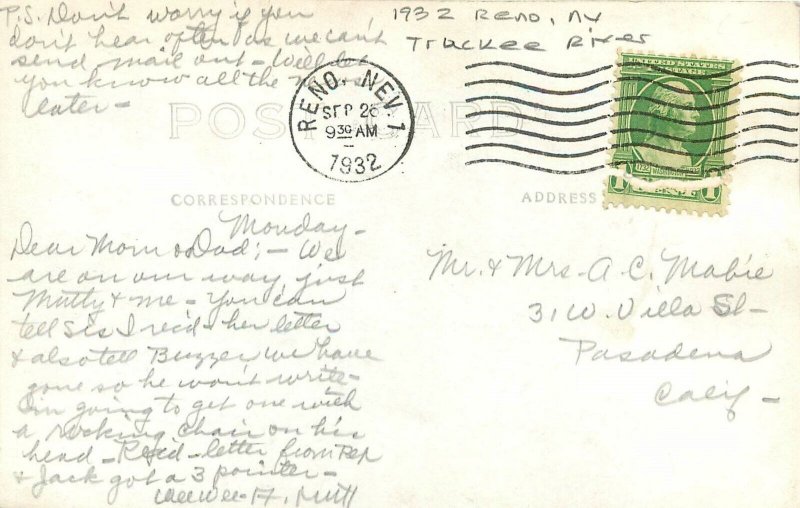 P.S. Don't worry if you
don't hear often as we can't
send mail out - Will let
you know all the news
later -
1932 Reno, NV
Truckee River
RENO, NEV. 1
SEP 26
9 30 AM
1932
UNITED STATES
POSTAGE
1 1
POST CARD
CORRESPONDENCE
ADDRESS
Monday -
Dear Mom & Dad; - We
are on our way just
Mutty & me - You can
tell Sis I rec'd her letter
& also tell Buzzer we have
gone so he won't write -
I'm going to get one with
a rocking chair on his
head - Rec'd letter from Pep
& Jack got a 3 pointer -
Mutt
Mr. & Mrs. A. C. Mabie
31 W. Villa St -
Pasadena
Calif -